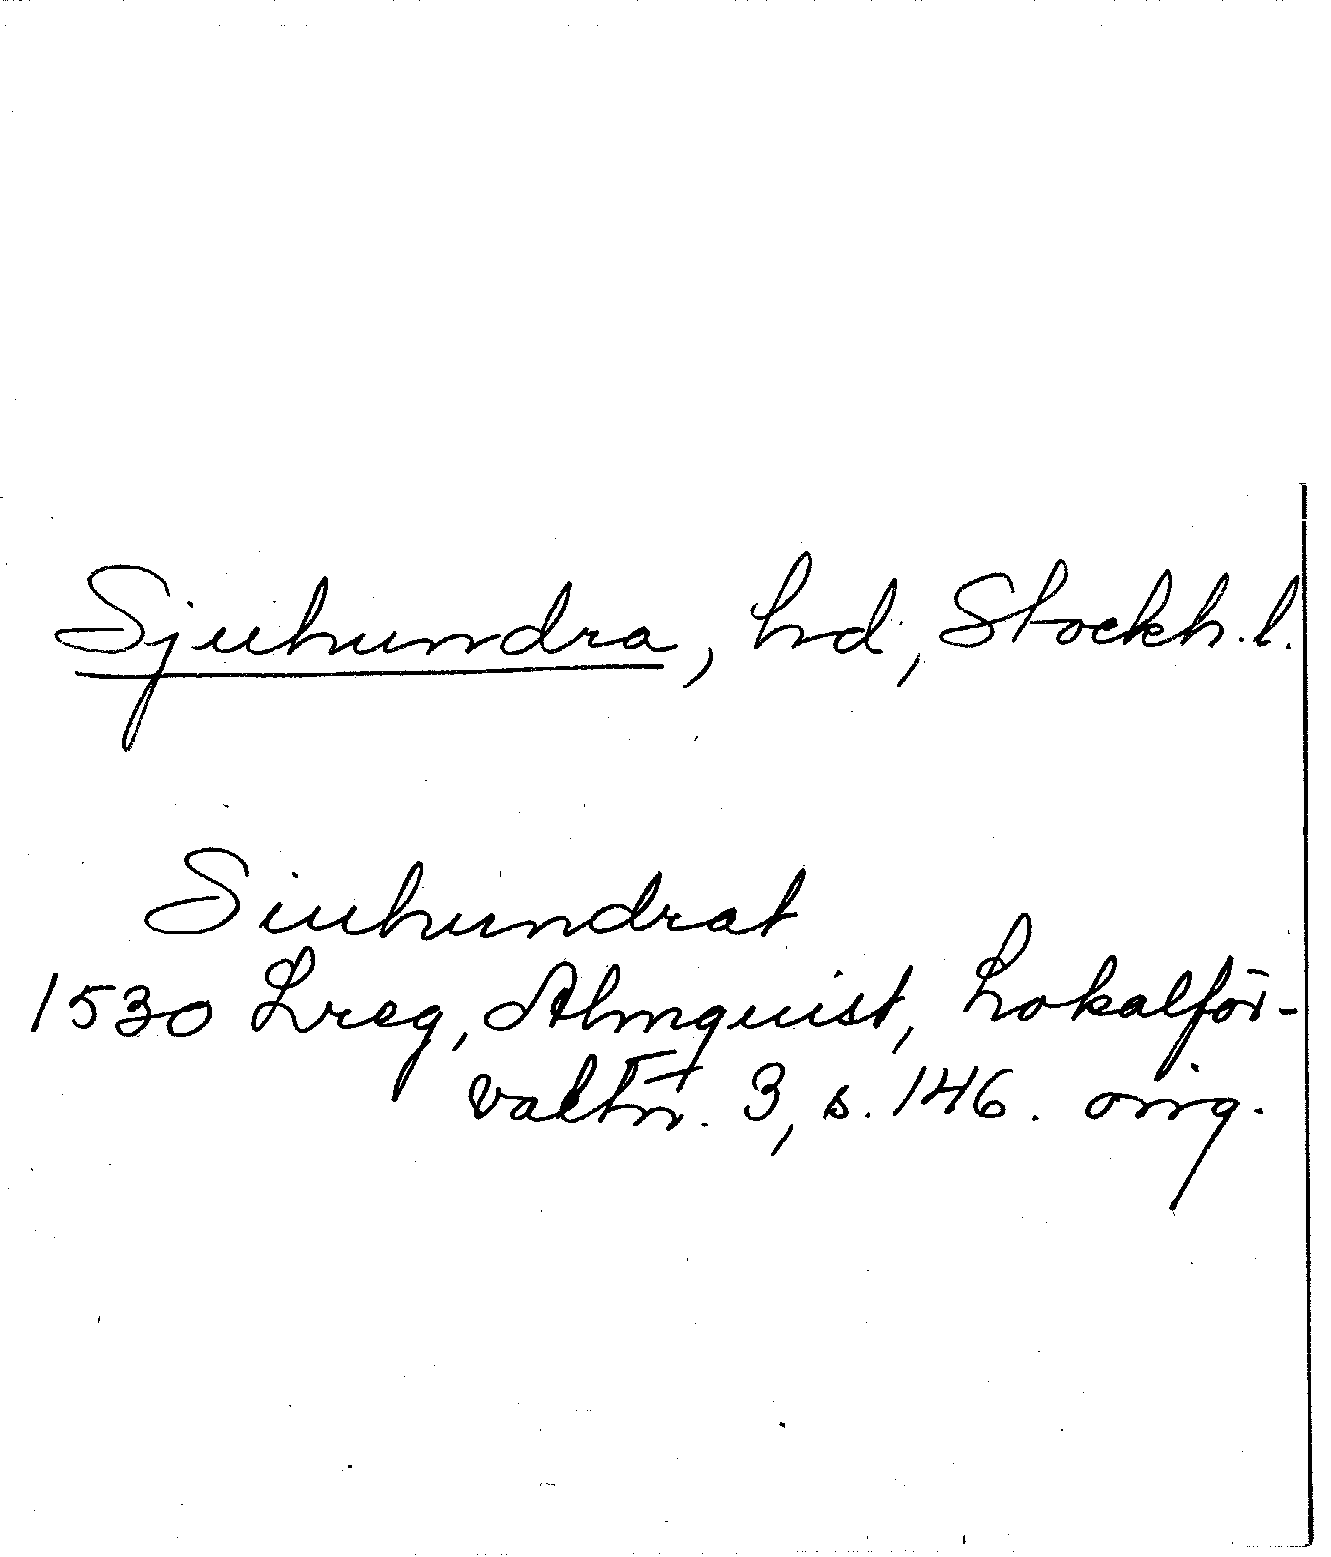 Sjuhundra, hd, Stockh. l.
Siuhundrat
1530 Lreg, Almquist, Lokalför-
valtn. 3, s. 146. orig.